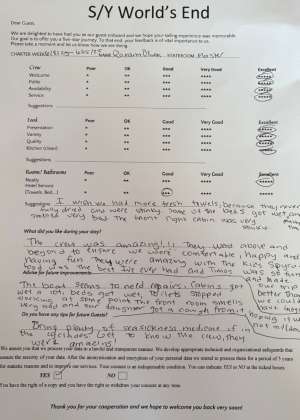 S/Y World's End
Dear Guest,
We are delighted to have had you as our guest onboard and we hope your sailing experience was memorable.
Our goal is to offer you a five-star journey. To that end your feedback is of vital importance to us.
Please take a moment and let us know how we are doing.
CHARTER WEEK NAME STATEROOM
Crew Poor OK Good Very Good Excellent
Welcome * ** *** **** *****
Polite * ** *** **** *****
Availability * ** *** **** *****
Service * ** *** **** *****
Suggestions
Food Poor OK Good Very Good Excellent
Presentation * ** *** **** *****
Variety * ** *** **** *****
Quality * ** *** **** *****
Kitchen (clean) * ** *** **** *****
Suggestions
Room/ Bathrooms Poor OK Good Very Good Excellent
Ready * ** *** **** *****
Hotel Service
(Towels, Bed...) * ** *** ****
Suggestions I wish we had more fresh towels, because they never
fully dried and were stinky. Some of the beds got wet and
smelled very bad. The front right cabin was very
What did you like during your day?
The crew was amazing!!! They went above and
beyond to ensure we were comfortable, happy and
having fun. They were amazing with the kids. Gyro's
food was the best I've ever had and Timos was so fun
Advice for future improvements and made
The boat seems to need repairs. Cabins got our trip
wet a lot, beds got wet, toilets stopped better than
working at some point, the front room smells we could
very bad and our daughter got a cough from it have
Do you have any tips for future Guests?
Bring plenty of seasickness medicine if in
the Cyclades. Get to know the crew, they
were amazing!
We assure you that we process your data in a lawful and transparent manner. We develop appropriate technical and organizational safeguards that
ensure the security of your data. After the anonymization and encryption of your personal data we intend to process them for a period of 5 years
for statistic reasons and to improve our services. Your consent is an indispensable condition. You can indicate YES or NO at the ticked boxes
YES NO
You have the right of a copy and you have the right to withdraw your consent at any time.
Thank you for your cooperation and we hope to welcome you back very soon!